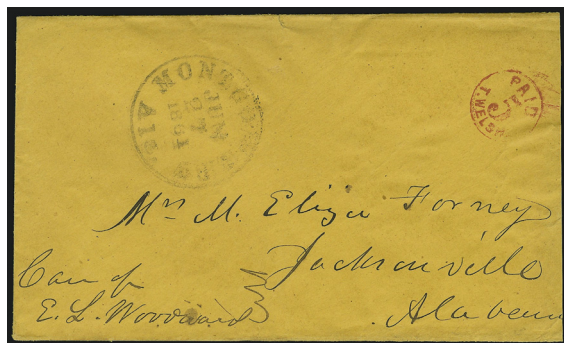 MONTGOMERY ALA.
JUN
27
1861
PAID
5
T. WELSH
Mrs M. Eliza Forney
Jacksonville
Alabama
Care of
E. L. Woodward